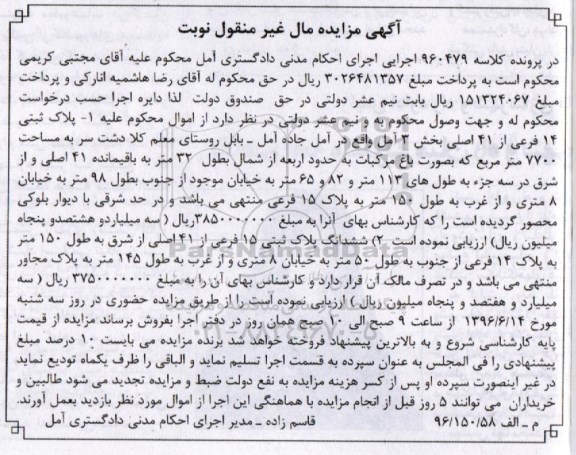 آگهی مزایده مال غیر منقول نوبت
در پرونده کلاسه ۹۶۰۴۷۹ اجرایی اجرای احکام مدنی دادگستری آمل محکوم علیه آقای مجتبی کریمی
محکوم است به پرداخت مبلغ ۳۰۲۶۴۸۱۳۵۷ ریال در حق محکوم له آقای رضا هاشمیه انارکی و پرداخت
مبلغ ۱۵۱۳۲۴۰۶۷ ریال بابت نیم عشر دولتی در حق صندوق دولت لذا دایره اجرا حسب درخواست
محکوم له و جهت وصول محکوم به و نیم عشر دولتی در نظر دارد از اموال محکوم علیه ۱- پلاک ثبتی
۱۴ فرعی از ۴۱ اصلی بخش ۲ آمل واقع در آمل جاده آمل ـ بابل روستای معلم کلا دشت سر به مساحت
۷۷۰۰ متر مربع که بصورت باغ مرکبات به حدود اربعه از شمال بطول ۳۲ متر به باقیمانده ۴۱ اصلی و از
شرق در سه جزء به طول های ۱۱۳ متر و ۸۲ و ۶۵ متر به خیابان موجود از جنوب بطول ۹۸ متر به خیابان
۸ متری و از غرب به طول ۱۵۰ متر به پلاک ۱۵ فرعی منتهی می باشد و در حد شرقی با دیوار بلوکی
محصور گردیده است را که کارشناس بهای آنرا به مبلغ ۳۸۵۰۰۰۰۰۰۰ریال ( سه میلیاردو هشتصدو پنجاه
میلیون ریال) ارزیابی نموده است ۲) ششدانگ پلاک ثبتی ۱۵ فرعی از ۴۱ اصلی از شرق به طول ۱۵۰ متر
به پلاک ۱۴ فرعی از جنوب به طول ۵۰ متر به خیابان ۸ متری و از غرب به طول ۱۴۵ متر به پلاک مجاور
منتهی می باشد و در تصرف مالک آن قرار دارد و کارشناس بهای آن را به مبلغ ۳۷۵۰۰۰۰۰۰۰ ریال ( سه
میلیارد و هفتصد و پنجاه میلیون ریال ) ارزیابی نموده است را از طریق مزایده حضوری در روز سه شنبه
مورخ ۱۳۹۶/۶/۱۴ از ساعت ۹ صبح الی ۱۰ صبح همان روز در دفتر اجرا بفروش برساند مزایده از قیمت
پایه کارشناسی شروع و به بالاترین پیشنهاد فروخته خواهد شد برنده مزایده می بایست ۱۰ درصد مبلغ
پیشنهادی را فی المجلس به عنوان سپرده به قسمت اجرا تسلیم نماید و الباقی را ظرف یکماه تودیع نماید
در غیر اینصورت سپرده او پس از کسر هزینه مزایده به نفع دولت ضبط و مزایده تجدید می شود طالبین و
خریداران می توانند ۵ روز قبل از انجام مزایده با هماهنگی این اجرا از اموال مورد نظر بازدید بعمل آورند.
م ـ الف ۹۶/۱۵۰/۵۸ قاسم زاده ـ مدیر اجرای احکام مدنی دادگستری آمل